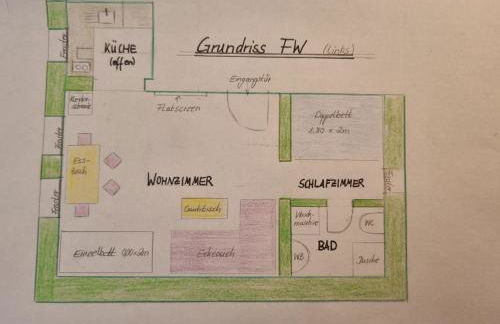 Grundriss FW (links)
KÜCHE
(offen)
Fenster
Eingangstür
Flatscreen
Doppelbett
1,80 x 2m
Fenster
Ess-
tisch
WOHNZIMMER
SCHLAFZIMMER
Fenster
Couchtisch
Wasch-
maschine
WC
BAD
Einzelbett
Eckcouch
WB
Dusche